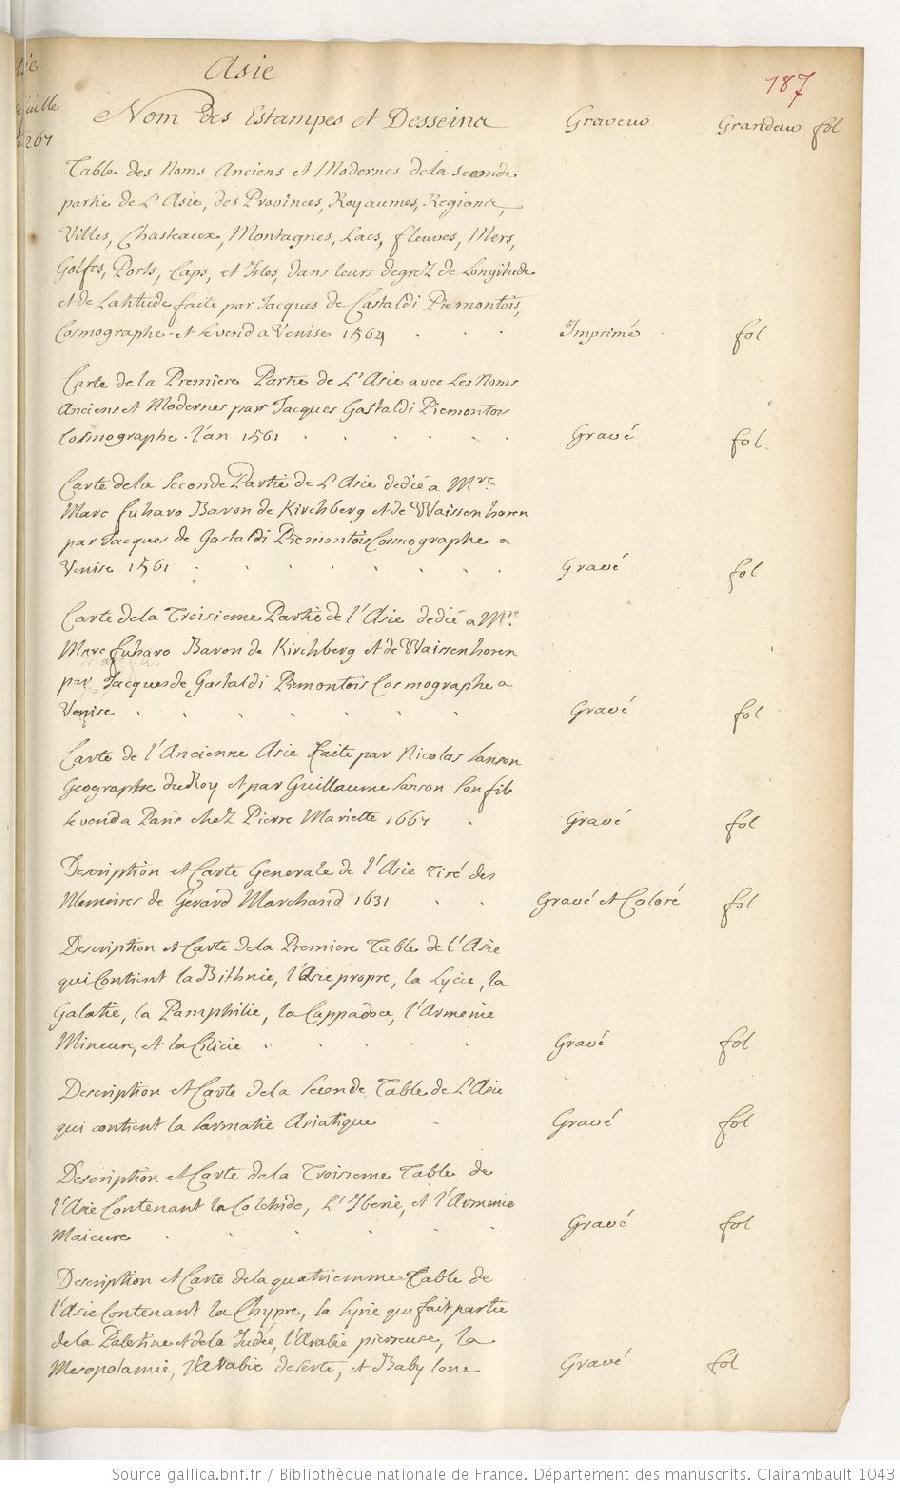 Asie
187
Nom des Estampes et Desseins Graveur Grandeur fol
Table des Noms Anciens et Modernes de la seconde
partie de L'Asie, des Provinces, Royaumes, Regions,
Villes, Chasteaux, Montagnes, Lacs, fleuves, Mers,
Golfes, Ports, Caps, et Isles, dans leurs degrez de Longitude
et de Latitude faite par Jacques de Castaldi Piemontois,
Cosmographe et se vend a Venise 1564 Imprimé fol
Carte de la Premiere Partie de L'Asie avec Les Noms
Anciens et Modernes par Jacques Gastaldi Piemontois
Cosmographe l'an 1561 Gravé fol
Carte de la seconde Partie de L'Asie dedié a Mre
Marc fuharo Baron de Kirchberg et de Waissenhoren
par Jacques de Gastaldi Piemontois Cosmographe a
Venise 1561 Gravé fol
Carte de la Troisieme Partie de l'Asie dedié a Mre
Marc fuharo Baron de Kirchberg et de Waissenhoren
par Jacques de Gastaldi Piemontois Cosmographe a
Venise Gravé fol
Carte de l'Ancienne Asie faite par Nicolas Sanson
Geographe du Roy et par Guillaume Sanson son fils
se vend a Paris chez Pierre Mariette 1667 Gravé fol
Description et Carte Generale de l'Asie Tiré des
Memoires de Gerard Marchand 1631 Gravé et Coloré fol
Description et Carte de la Premiere Table de l'Asie
qui Contient la Bithnie, l'Asie propre, la Lycie, la
Galatie, la Pamphilie, la Cappadoce, l'Armenie
Mineure, et la Cilicie Gravé fol
Description et Carte de la seconde Table de L'Asie
qui contient la Sarmatie Asiatique Gravé fol
Description et Carte de la Troisieme Table de
l'Asie Contenant la Colchide, L'Iberie, et l'Armenie
Maieure Gravé fol
Description et Carte de la quatriemme Table de
l'Asie Contenant la Chypre, la Syrie qui fait partie
de la Palestine et de la Judée, l'Arabie pierreuse, la
Mesopotamie, l'Arabie deserte, et Babylone Gravé fol
Source gallica.bnf.fr / Bibliothèque nationale de France. Département des manuscrits. Clairambault 1043